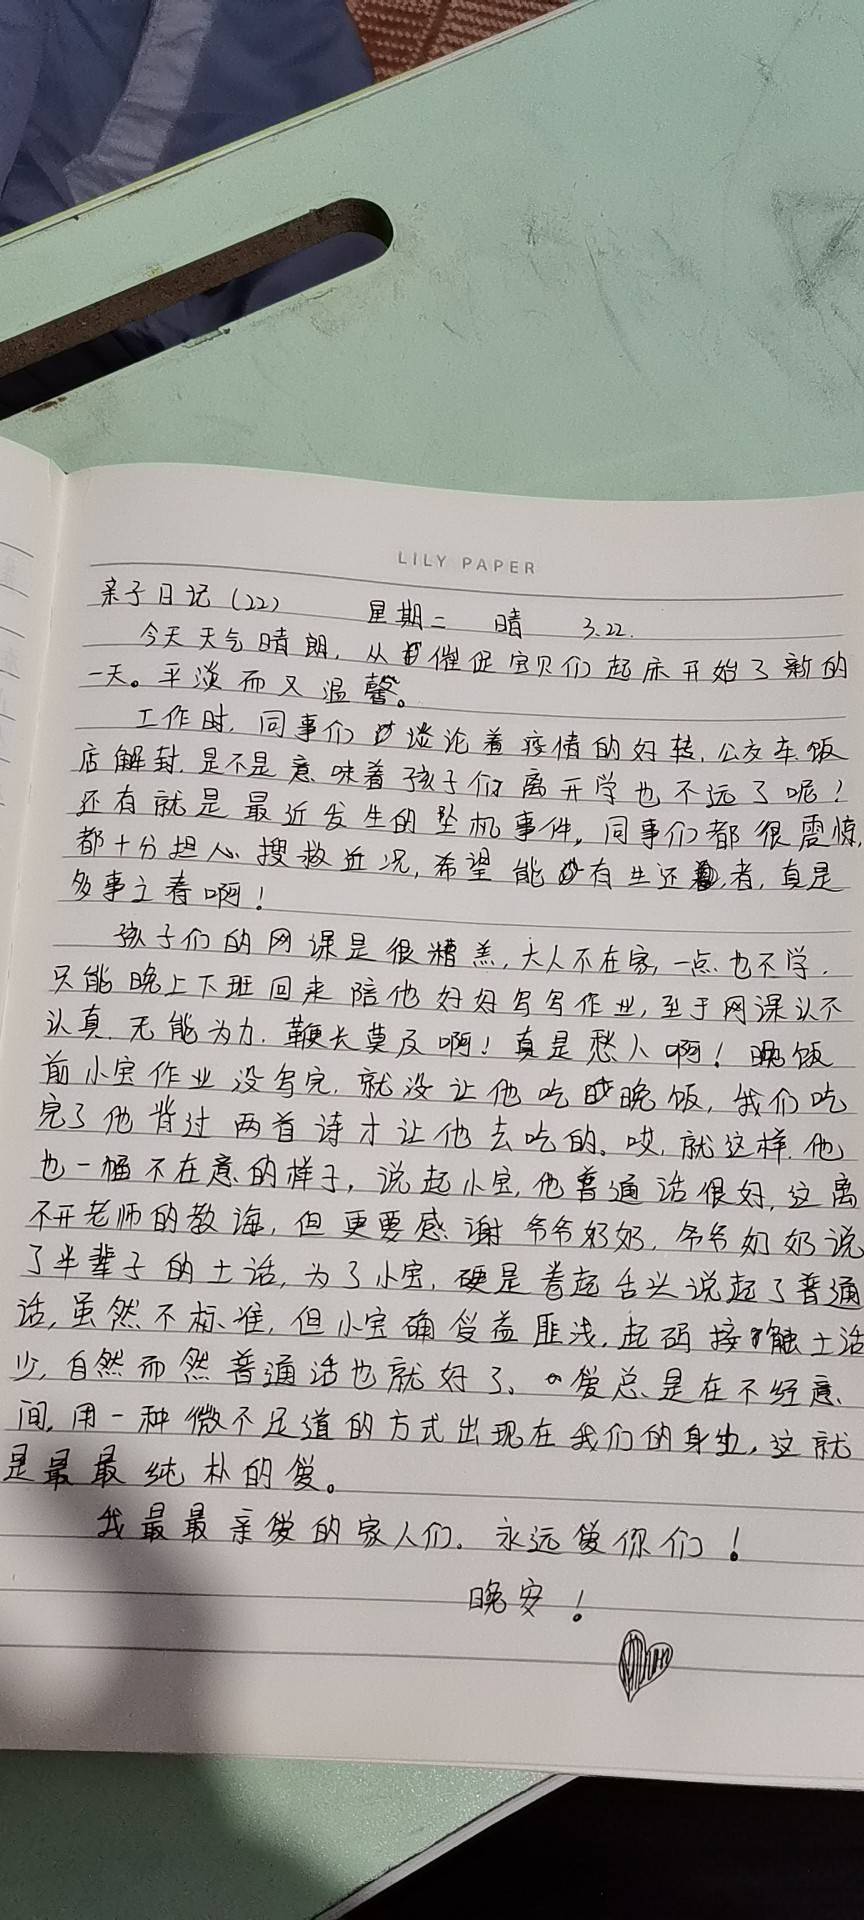 LILY PAPER
亲子日记（22） 星期二 晴 3.22.
今天天气晴朗，从催促宝贝们起床开始了新的
一天。平淡而又温馨。
工作时，同事们谈论着疫情的好转，公交车饭
店解封，是不是意味着孩子们离开学也不远了呢？
还有就是最近发生的坠机事件，同事们都很震惊，
都十分担心搜救近况，希望能有生还者，真是
多事之春啊！
孩子们的网课是很糟羔，大人不在家，一点也不学，
只能晚上下班回来陪他好好写写作业，至于网课认不
认真，无能为力，鞭长莫及啊！真是愁人啊！晚饭
前小宝作业没写完，就没让他吃晚饭，我们吃
完了他背过两首诗才让他去吃的。哎，就这样，他
也一幅不在意的样子，说起小宝，他普通话很好，这离
不开老师的教诲，但更要感谢爷爷奶奶，爷爷奶奶说
了半辈子的土话，为了小宝，硬是卷起舌头说起了普通
话，虽然不标准，但小宝确受益匪浅，起码接触土话
少，自然而然普通话也就好了。爱总是在不经意
间，用一种微不足道的方式出现在我们的身边，这就
是最最纯朴的爱。
我最最亲爱的家人们。永远爱你们！
晚安！